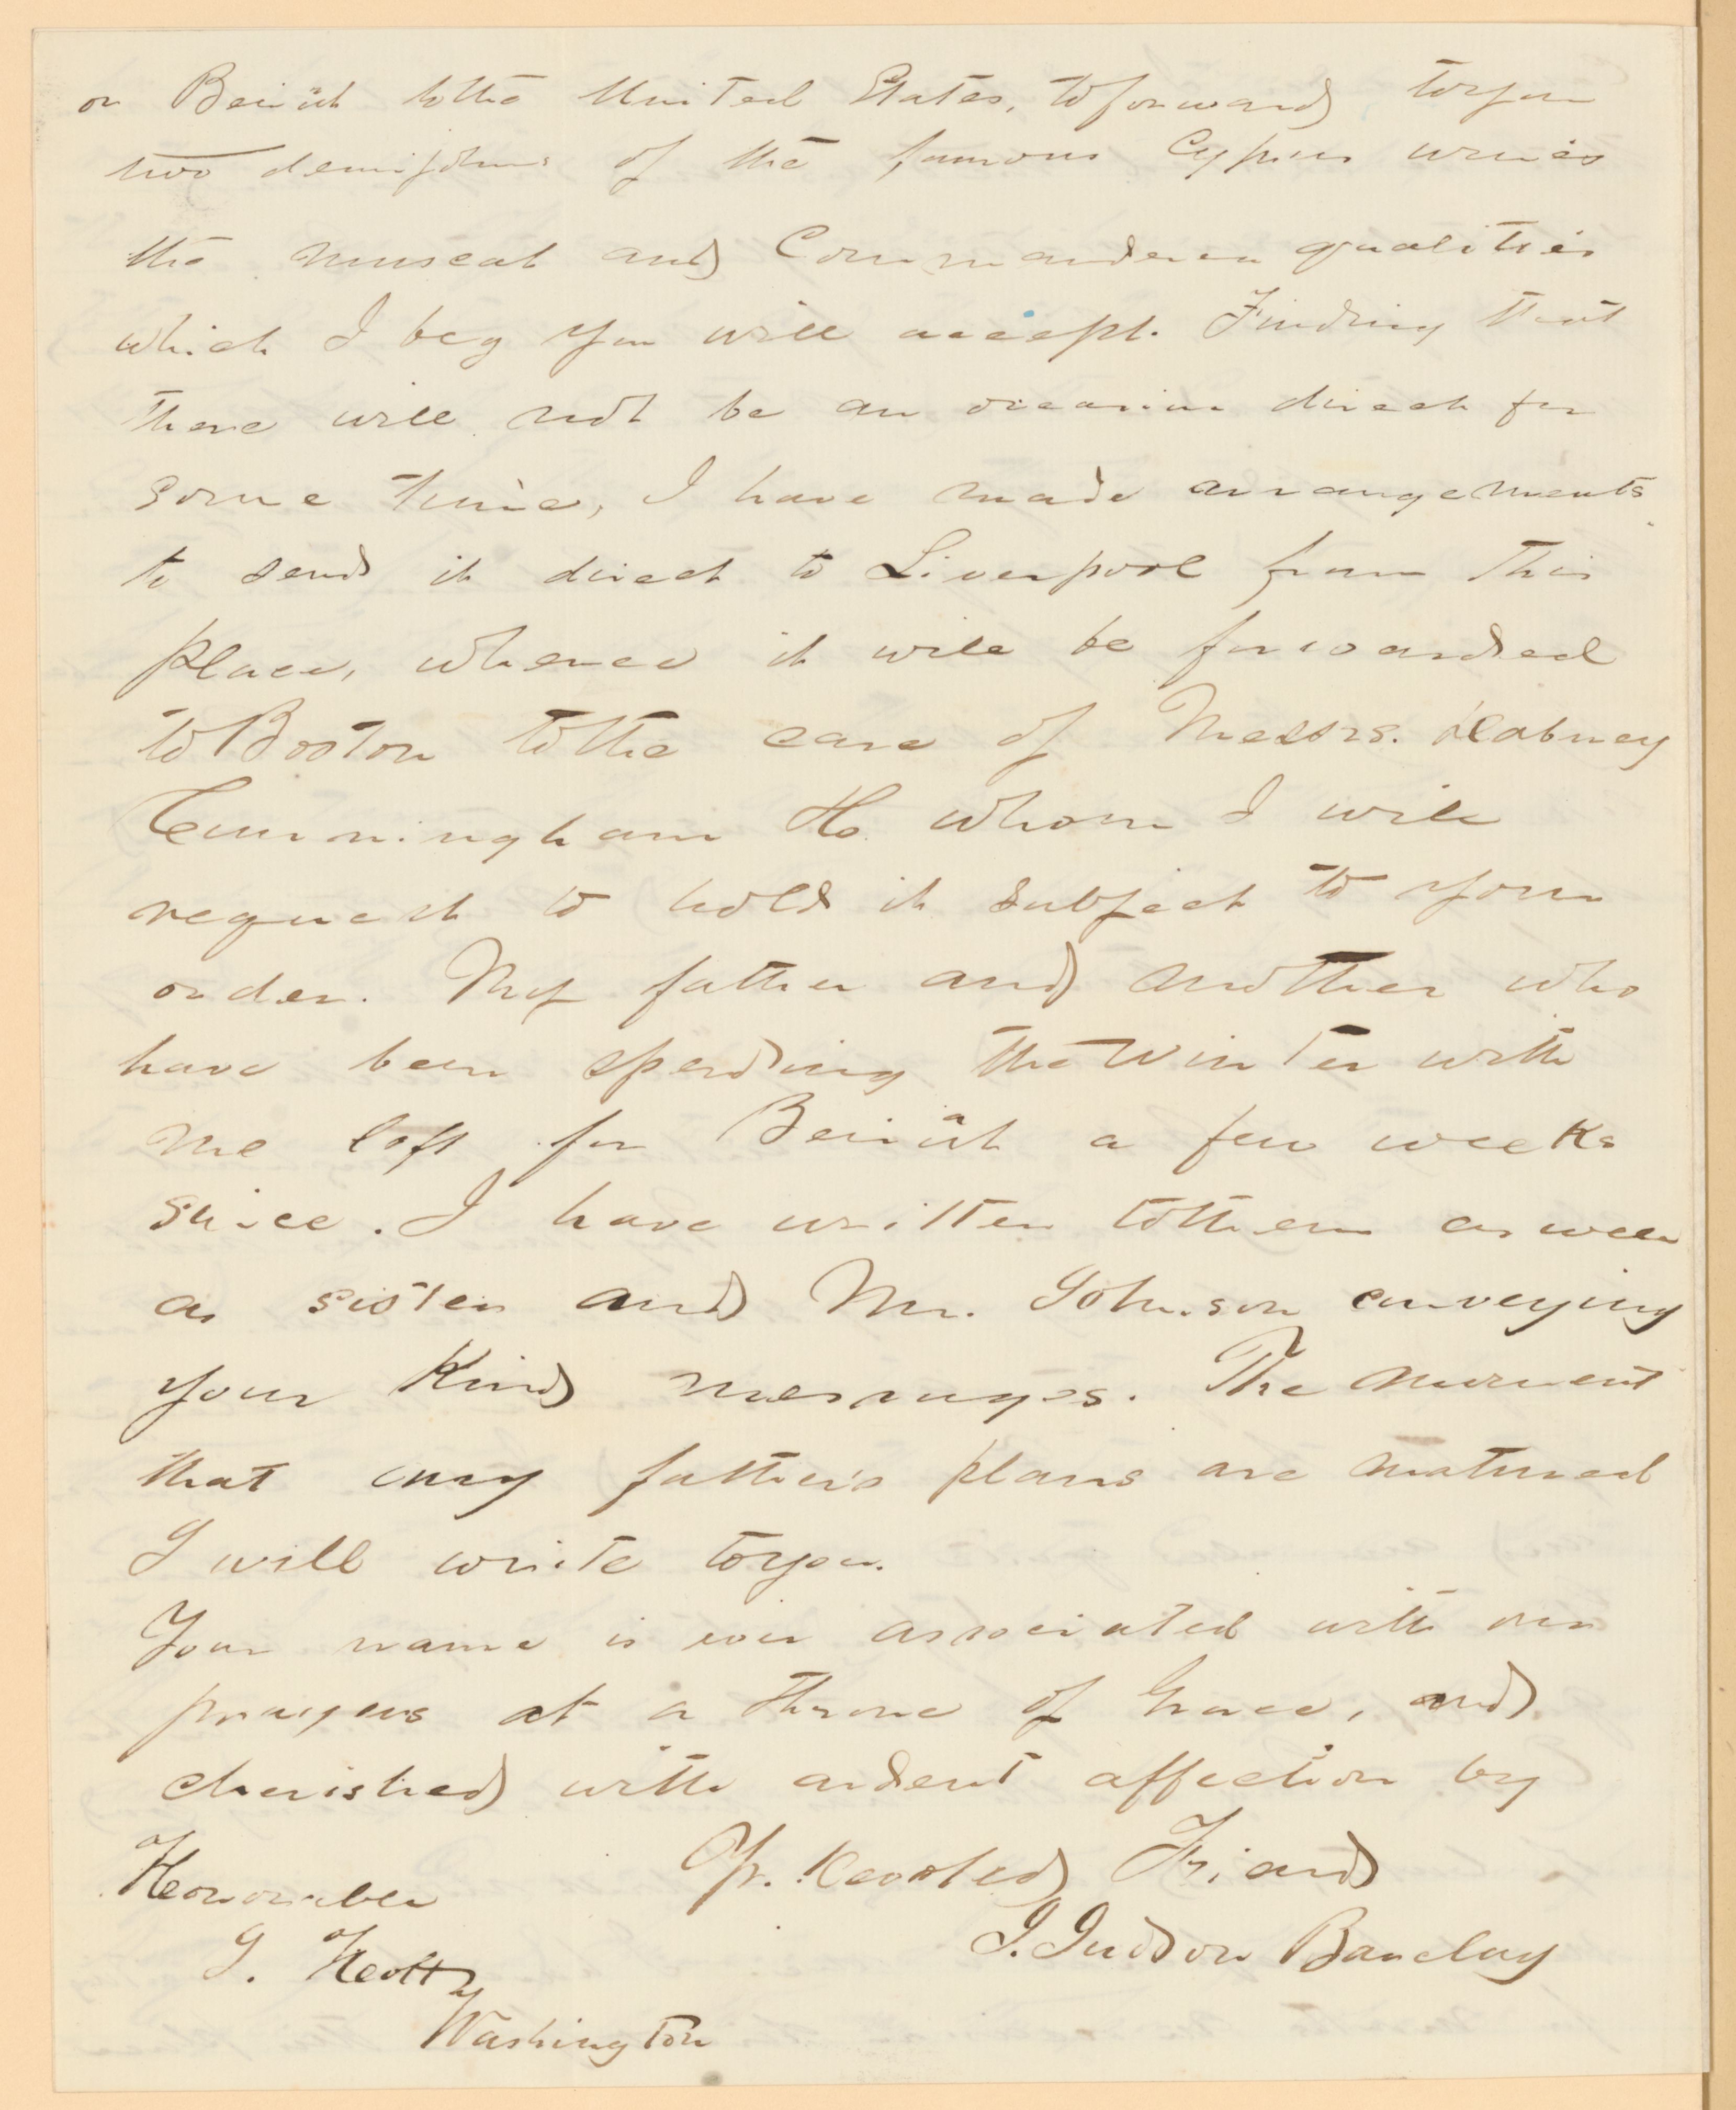 or Beirût to the United States, to forward to you
two demijohns of the famous Cyprus wines
the muscat and Commanderea qualities
which I beg you will accept. Finding that
there will not be an occasion direct for
some time, I have made arrangements
to send it direct to Liverpool from this
place, whence it will be forwarded
to Boston to the care of Messrs. Dabney
Cunningham & Co. whom I will
request to hold it subject to your
order. My father and mother who
have been spending the Winter with
me left for Beirût a few weeks
since. I have written to them as well
as sister and Mr. Johnson conveying
your kind messages. The moment
that my father's plans are matured
I will write to you.
Your name is ever associated with our
prayers at a throne of Grace, and
cherished with ardent affection by
Yr. devoted Friend
J. Judson Barclay
Honorable
J. Holt
Washington